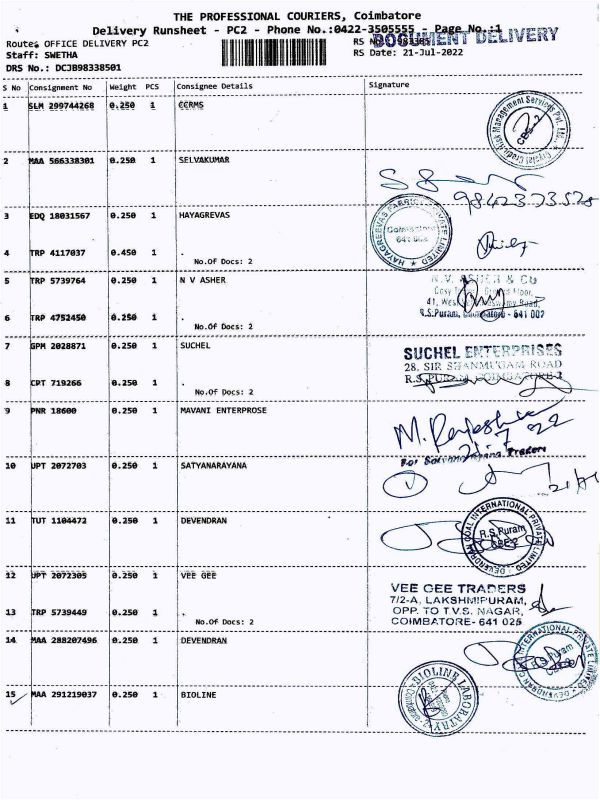 THE PROFESSIONAL COURIERS, Coimbatore
Delivery Runsheet - PC2 - Phone No.:0422-3505555 - Page No.:1
DOCUMENT DELIVERY
Route: OFFICE DELIVERY PC2
Staff: SWETHA
RS Date: 21-Jul-2022
DRS No.: DCJB98338501
S No Consignment No Weight PCS Consignee Details Signature
1 SLM 299744268 0.250 1 CCRMS
2 MAA 566338301 0.250 1 SELVAKUMAR
3 EDQ 18031567 0.250 1 HAYAGREVAS
HAYAGREEVAS FABRICS PRIVATE LIMITED
Coimbatore
641 002
4 TRP 4117037 0.450 1
No.Of Docs: 2
5 TRP 5739764 0.250 1 N V ASHER
N.V. ASHER & CO
R.S.Puram, Coimbatore - 641 002
6 TRP 4752450 0.250 1 .
No.Of Docs: 2
7 GPM 2028871 0.250 1 SUCHEL
SUCHEL ENTERPRISES
28, SIR SHANMUGAM ROAD
R.S.PURAM, COIMBATORE-2
8 CPT 719266 0.250 1 .
No.Of Docs: 2
9 PNR 18600 0.250 1 MAVANI ENTERPROSE
10 UPT 2072703 0.250 1 SATYANARAYANA
11 TUT 1104472 0.250 1 DEVENDRAN
R.S.Puram
CBE-2
12 UPT 2072305 0.250 1 VEE GEE
VEE GEE TRADERS
7/2-A, LAKSHMIPURAM,
OPP. TO T.V.S. NAGAR,
COIMBATORE- 641 025
13 TRP 5739449 0.250 1 .
No.Of Docs: 2
14 MAA 288207496 0.250 1 DEVENDRAN
15 MAA 291219037 0.250 1 BIOLINE
BIOLINE LABORATRY